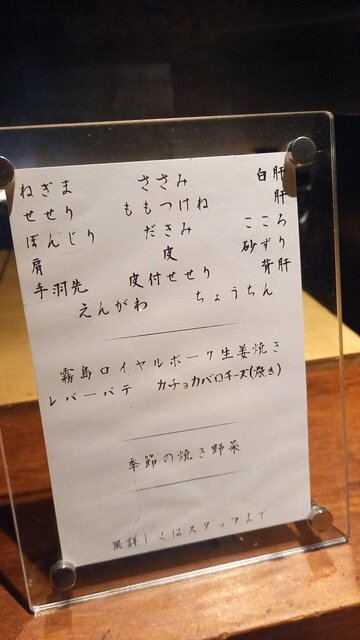 ねぎま ささみ 白肝
せせり ももつけね 肝
ぼんじり だきみ こころ
肩 皮 砂ずり
手羽先 皮付せせり 背肝
えんがわ ちょうちん
霧島ロイヤルポーク生姜焼き
レバーパテ カチョカバロチーズ(焼き)
季節の焼き野菜
※詳しくはスタッフまで